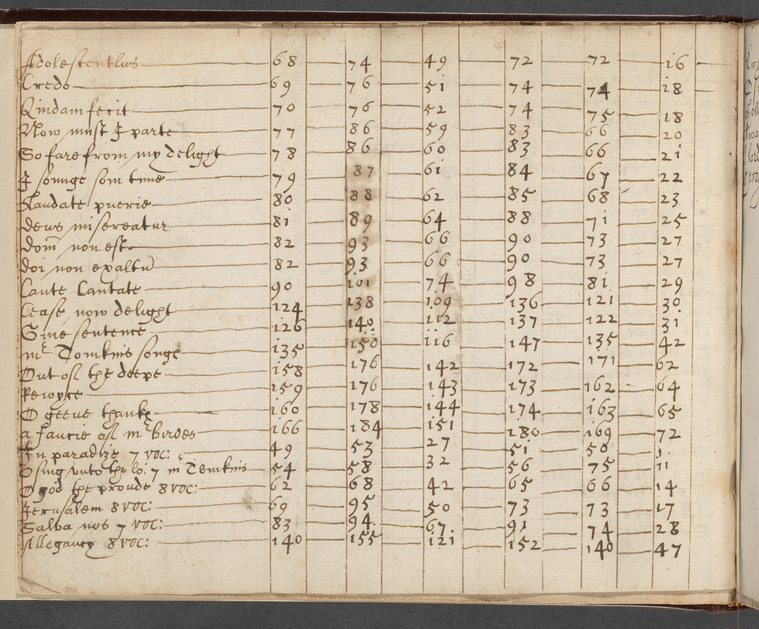 Adolescentlus 68 74 49 72 72 16
Credo 69 76 51 74 74 18
Quidam fecit 70 76 52 74 75 18
Now must I parte 77 86 59 83 66 20
So fare from my delight 78 86 60 83 66 21
I sounge som time 79 87 61 84 67 22
Laudate puerie 80 88 62 85 68 23
Deus misereatur 81 89 64 88 71 25
Dom non est 82 93 66 90 73 27
doi non exaltu 82 93 66 90 73 27
Cante Cantate 90 101 74 98 81 29
Cease now delight 124 138 109 136 121 30
Sine sentence 126 140 112 137 122 31
mr Tomkins songe 135 150 116 147 135 42
Out of the deepe 158 176 142 172 171 62
Reioyce 159 176 143 173 162 64
O geeve thanks 160 178 144 174 163 65
a fancie of mr Birdes 166 184 151 180 169 72
In paradize 7 voc: 49 53 27 51 50 1
O sing unto the lo: 7 mr Tomkins 54 58 32 56 75 11
O god the proude 8 voc: 62 68 42 65 66 14
Jerusalem 8 voc: 69 95 50 73 73 17
Salva nos 7 voc: 83 94 67 91 74 28
Allegancy 8 voc: 140 155 121 152 140 47